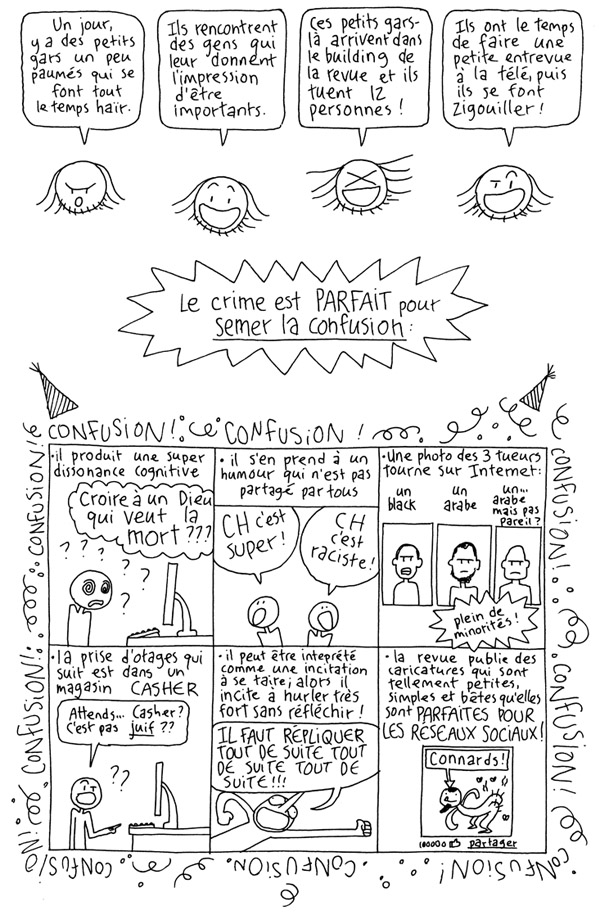 Un jour,
y a des petits
gars un peu
paumés qui se
font tout
le temps haïr.
Ils rencontrent
des gens qui
leur donnent
l'impression
d'être
importants.
Ces petits gars-
là arrivent dans
le building de
la revue et ils
tuent 12
personnes !
Ils ont le temps
de faire une
petite entrevue
à la télé, puis
ils se font
zigouiller !
Le crime est PARFAIT pour
semer la confusion :
CONFUSION ! CONFUSION !
CONFUSION !
CONFUSION !
CONFUSION !
• il produit une super
dissonance cognitive
Croire à un Dieu
qui veut la
mort ???
? ? ? ? ?
• il s'en prend à un
humour qui n'est pas
partagé par tous
CH c'est
super !
CH
c'est
raciste !
• Une photo des 3 tueurs
tourne sur Internet :
un
black
un
arabe
un...
arabe
mais pas
pareil ?
plein de
minorités !
• la prise d'otages qui
suit est dans un
magasin CASHER
Attends... Casher ?
C'est pas juif ??
??
• il peut être inteprété
comme une incitation
à se taire; alors il
incite à hurler très
fort sans réfléchir !
IL FAUT RÉPLIQUER
TOUT DE SUITE TOUT
DE SUITE TOUT DE
SUITE !!!
• la revue publie des
caricatures qui sont
tellement petites,
simples et bêtes qu'elles
sont PARFAITES POUR
LES RÉSEAUX SOCIAUX !
Connards !
partager
CONFUSION !
CONFUSION !
CONFUSION
CONFUSION !